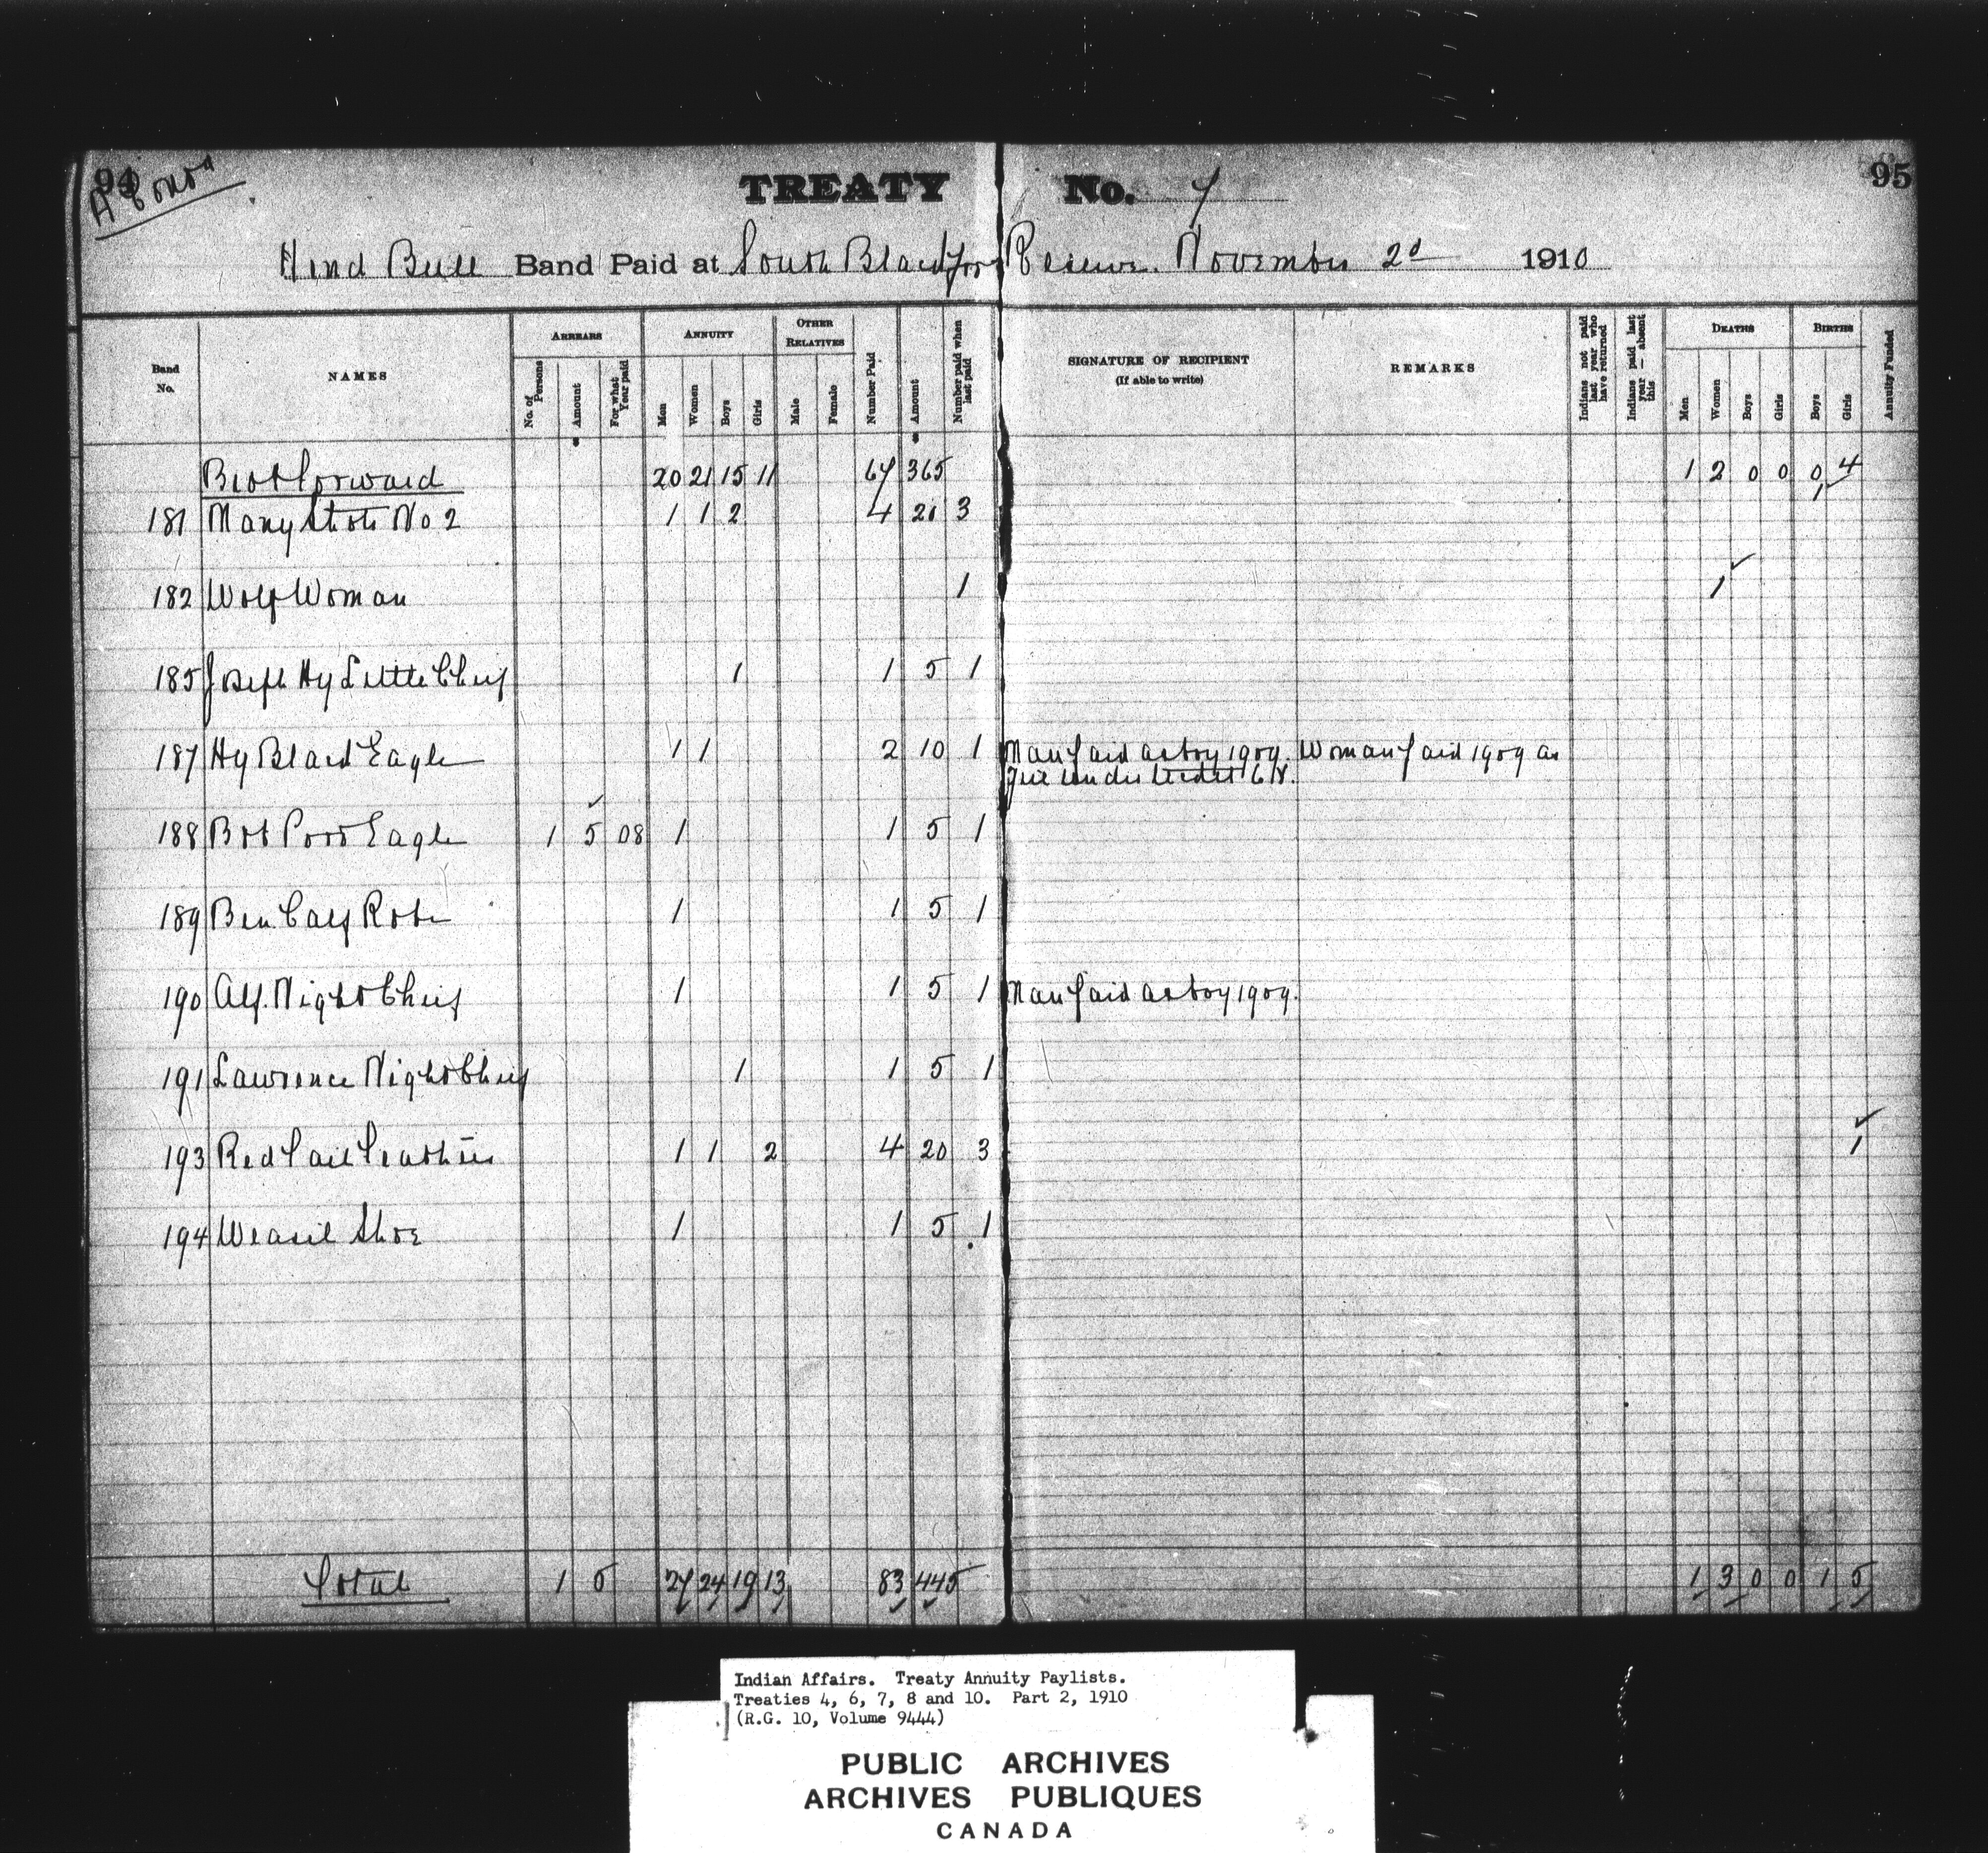 94
TREATY No. 7
95
Hind Bull Band Paid at South Blackfoot Reserve. November 2d 1910
Band No. NAMES ARREARS ANNUITY OTHER RELATIVES Number Paid Amount Number paid when last paid SIGNATURE OF RECIPIENT (If able to write) REMARKS Indians not paid last year who have returned Indians paid last year — absent this DEATHS BIRTHS Annuity Funded
No. of Persons Amount For what Year paid Men Women Boys Girls Male Female Men Women Boys Girls Boys Girls
Brot forward 20 21 15 11 67 365 1 2 0 0 0 4
181 Many Shots No 2 1 1 2 4 20 3 1
182 Wolf Woman 1 1
185 Joseph Hy Little Chief 1 1 5 1
187 Hy Black Eagle 1 1 2 10 1 Man paid as boy 1909. Woman paid 1909 as
girl under ticket
188 Bob Poor Eagle 1 5 08 1 1 5 1
189 Ben. Calf Robe 1 1 5 1
190 Alf. Night Chief 1 1 5 1 Man paid as boy 1909.
191 Lawrence Night Chief 1 1 5 1
193 Red Tail Feathers 1 1 2 4 20 3 1
194 Weasil Shoe 1 1 5 1
Total 1 5 27 24 19 13 83 445 1 3 0 0 1 5
Indian Affairs. Treaty Annuity Paylists.
Treaties 4, 6, 7, 8 and 10. Part 2, 1910
(R.G. 10, Volume 9444)
PUBLIC ARCHIVES
ARCHIVES PUBLIQUES
CANADA